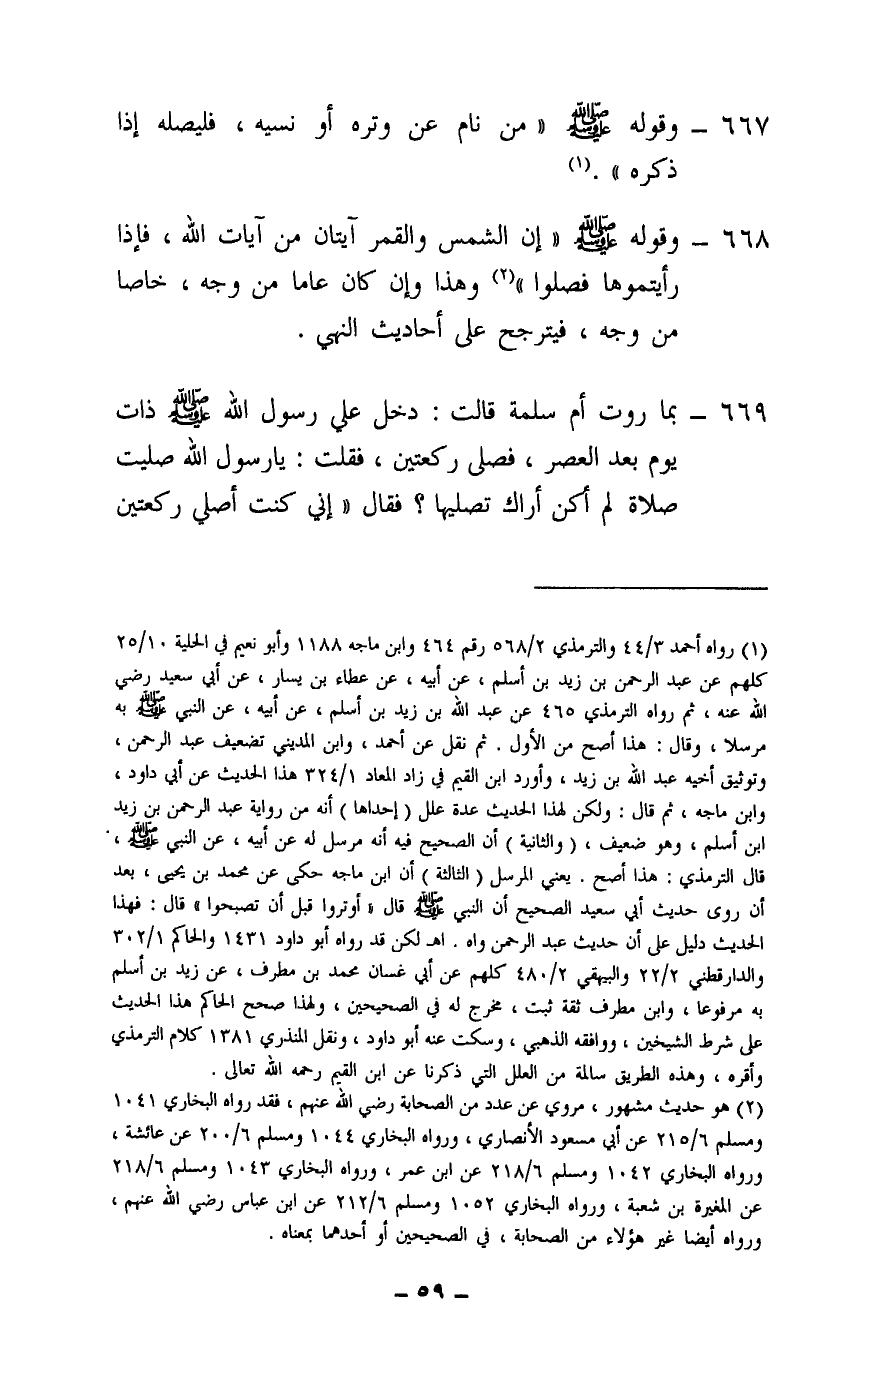 ٦٦٧ ــ وقوله ﷺ « من نام عن وتره أو نسيه ، فليصله إذا
ذكره » .(١)
٦٦٨ ــ وقوله ﷺ « إن الشمس والقمر آيتان من آيات الله ، فإذا
رأيتموها فصلوا »(٢) وهذا وإن كان عاما من وجه ، خاصا
من وجه ، فيترجح على أحاديث النهي .
٦٦٩ ــ بما روت أم سلمة قالت : دخل علي رسول الله ﷺ ذات
يوم بعد العصر ، فصلى ركعتين ، فقلت : يارسول الله صليت
صلاة لم أكن أراك تصليها ؟ فقال « إني كنت أصلي ركعتين
(١) رواه أحمد ٤٤/٣ والترمذي ٥٦٨/٢ رقم ٤٦٤ وابن ماجه ١١٨٨ وأبو نعيم في الحلية ٢٥/١٠
كلهم عن عبد الرحمن بن زيد بن أسلم ، عن أبيه ، عن عطاء بن يسار ، عن أبي سعيد رضي
الله عنه ، ثم رواه الترمذي ٤٦٥ عن عبد الله بن زيد بن أسلم ، عن أبيه ، عن النبي ﷺ به
مرسلا ، وقال : هذا أصح من الأول . ثم نقل عن أحمد ، وابن المديني تضعيف عبد الرحمن ،
وتوثيق أخيه عبد الله بن زيد ، وأورد ابن القيم في زاد المعاد ٣٢٤/١ هذا الحديث عن أبي داود ،
وابن ماجه ، ثم قال : ولكن لهذا الحديث عدة علل ( إحداها ) أنه من رواية عبد الرحمن بن زيد
ابن أسلم ، وهو ضعيف ، ( والثانية ) أن الصحيح فيه أنه مرسل له عن أبيه ، عن النبي ﷺ ،
قال الترمذي : هذا أصح . يعني المرسل ( الثالثة ) أن ابن ماجه حكى عن محمد بن يحيى ، بعد
أن روى حديث أبي سعيد الصحيح أن النبي ﷺ قال « أوتروا قبل أن تصبحوا » قال : فهذا
الحديث دليل على أن حديث عبد الرحمن واه . اهـ لكن قد رواه أبو داود ١٤٣١ والحاكم ٣٠٢/١
والدارقطني ٢٢/٢ والبيهقي ٤٨٠/٢ كلهم عن أبي غسان محمد بن مطرف ، عن زيد بن أسلم
به مرفوعا ، وابن مطرف ثقة ثبت ، مخرج له في الصحيحين ، ولهذا صحح الحاكم هذا الحديث
على شرط الشيخين ، ووافقه الذهبي ، وسكت عنه أبو داود ، ونقل المنذري ١٣٨١ كلام الترمذي
وأقره ، وهذه الطريق سالمة من العلل التي ذكرنا عن ابن القيم رحمه الله تعالى .
(٢) هو حديث مشهور ، مروي عن عدد من الصحابة رضي الله عنهم ، فقد رواه البخاري ١٠٤١
ومسلم ٢١٥/٦ عن أبي مسعود الأنصاري ، ورواه البخاري ١٠٤٤ ومسلم ٢٠٠/٦ عن عائشة ،
ورواه البخاري ١٠٤٢ ومسلم ٢١٨/٦ عن ابن عمر ، ورواه البخاري ١٠٤٣ ومسلم ٢١٨/٦
عن المغيرة بن شعبة ، ورواه البخاري ١٠٥٢ ومسلم ٢١٢/٦ عن ابن عباس رضي الله عنهم ،
ورواه أيضا غير هؤلاء من الصحابة ، في الصحيحين أو أحدهما بمعناه .
ــ ٥٩ ــ